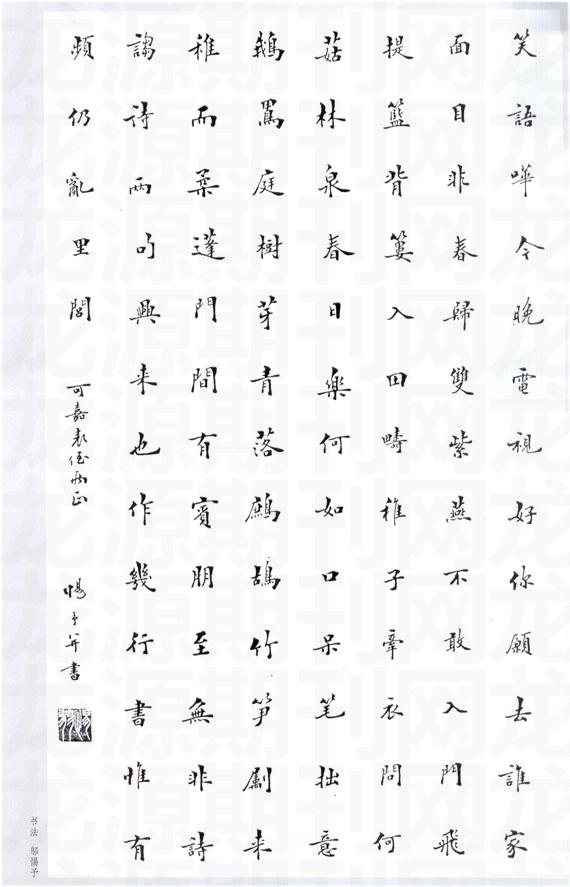 笑語嘩今晚電視好你願去誰家
面目非春歸雙紫燕不敢入門飛
提籃背簍入田疇稚子牽衣問何
菇林泉春日樂何如口呆笔拙意
鵝罵庭樹芽青落鷓鴣竹笋劚来
稚而柔蓬門間有賓朋至無非詩
謅詩兩句興来也作幾行書惟有
頻仍亂里閭
可嘉表侄雨正
惕予并書
书法 邬惕予
龙源期刊网